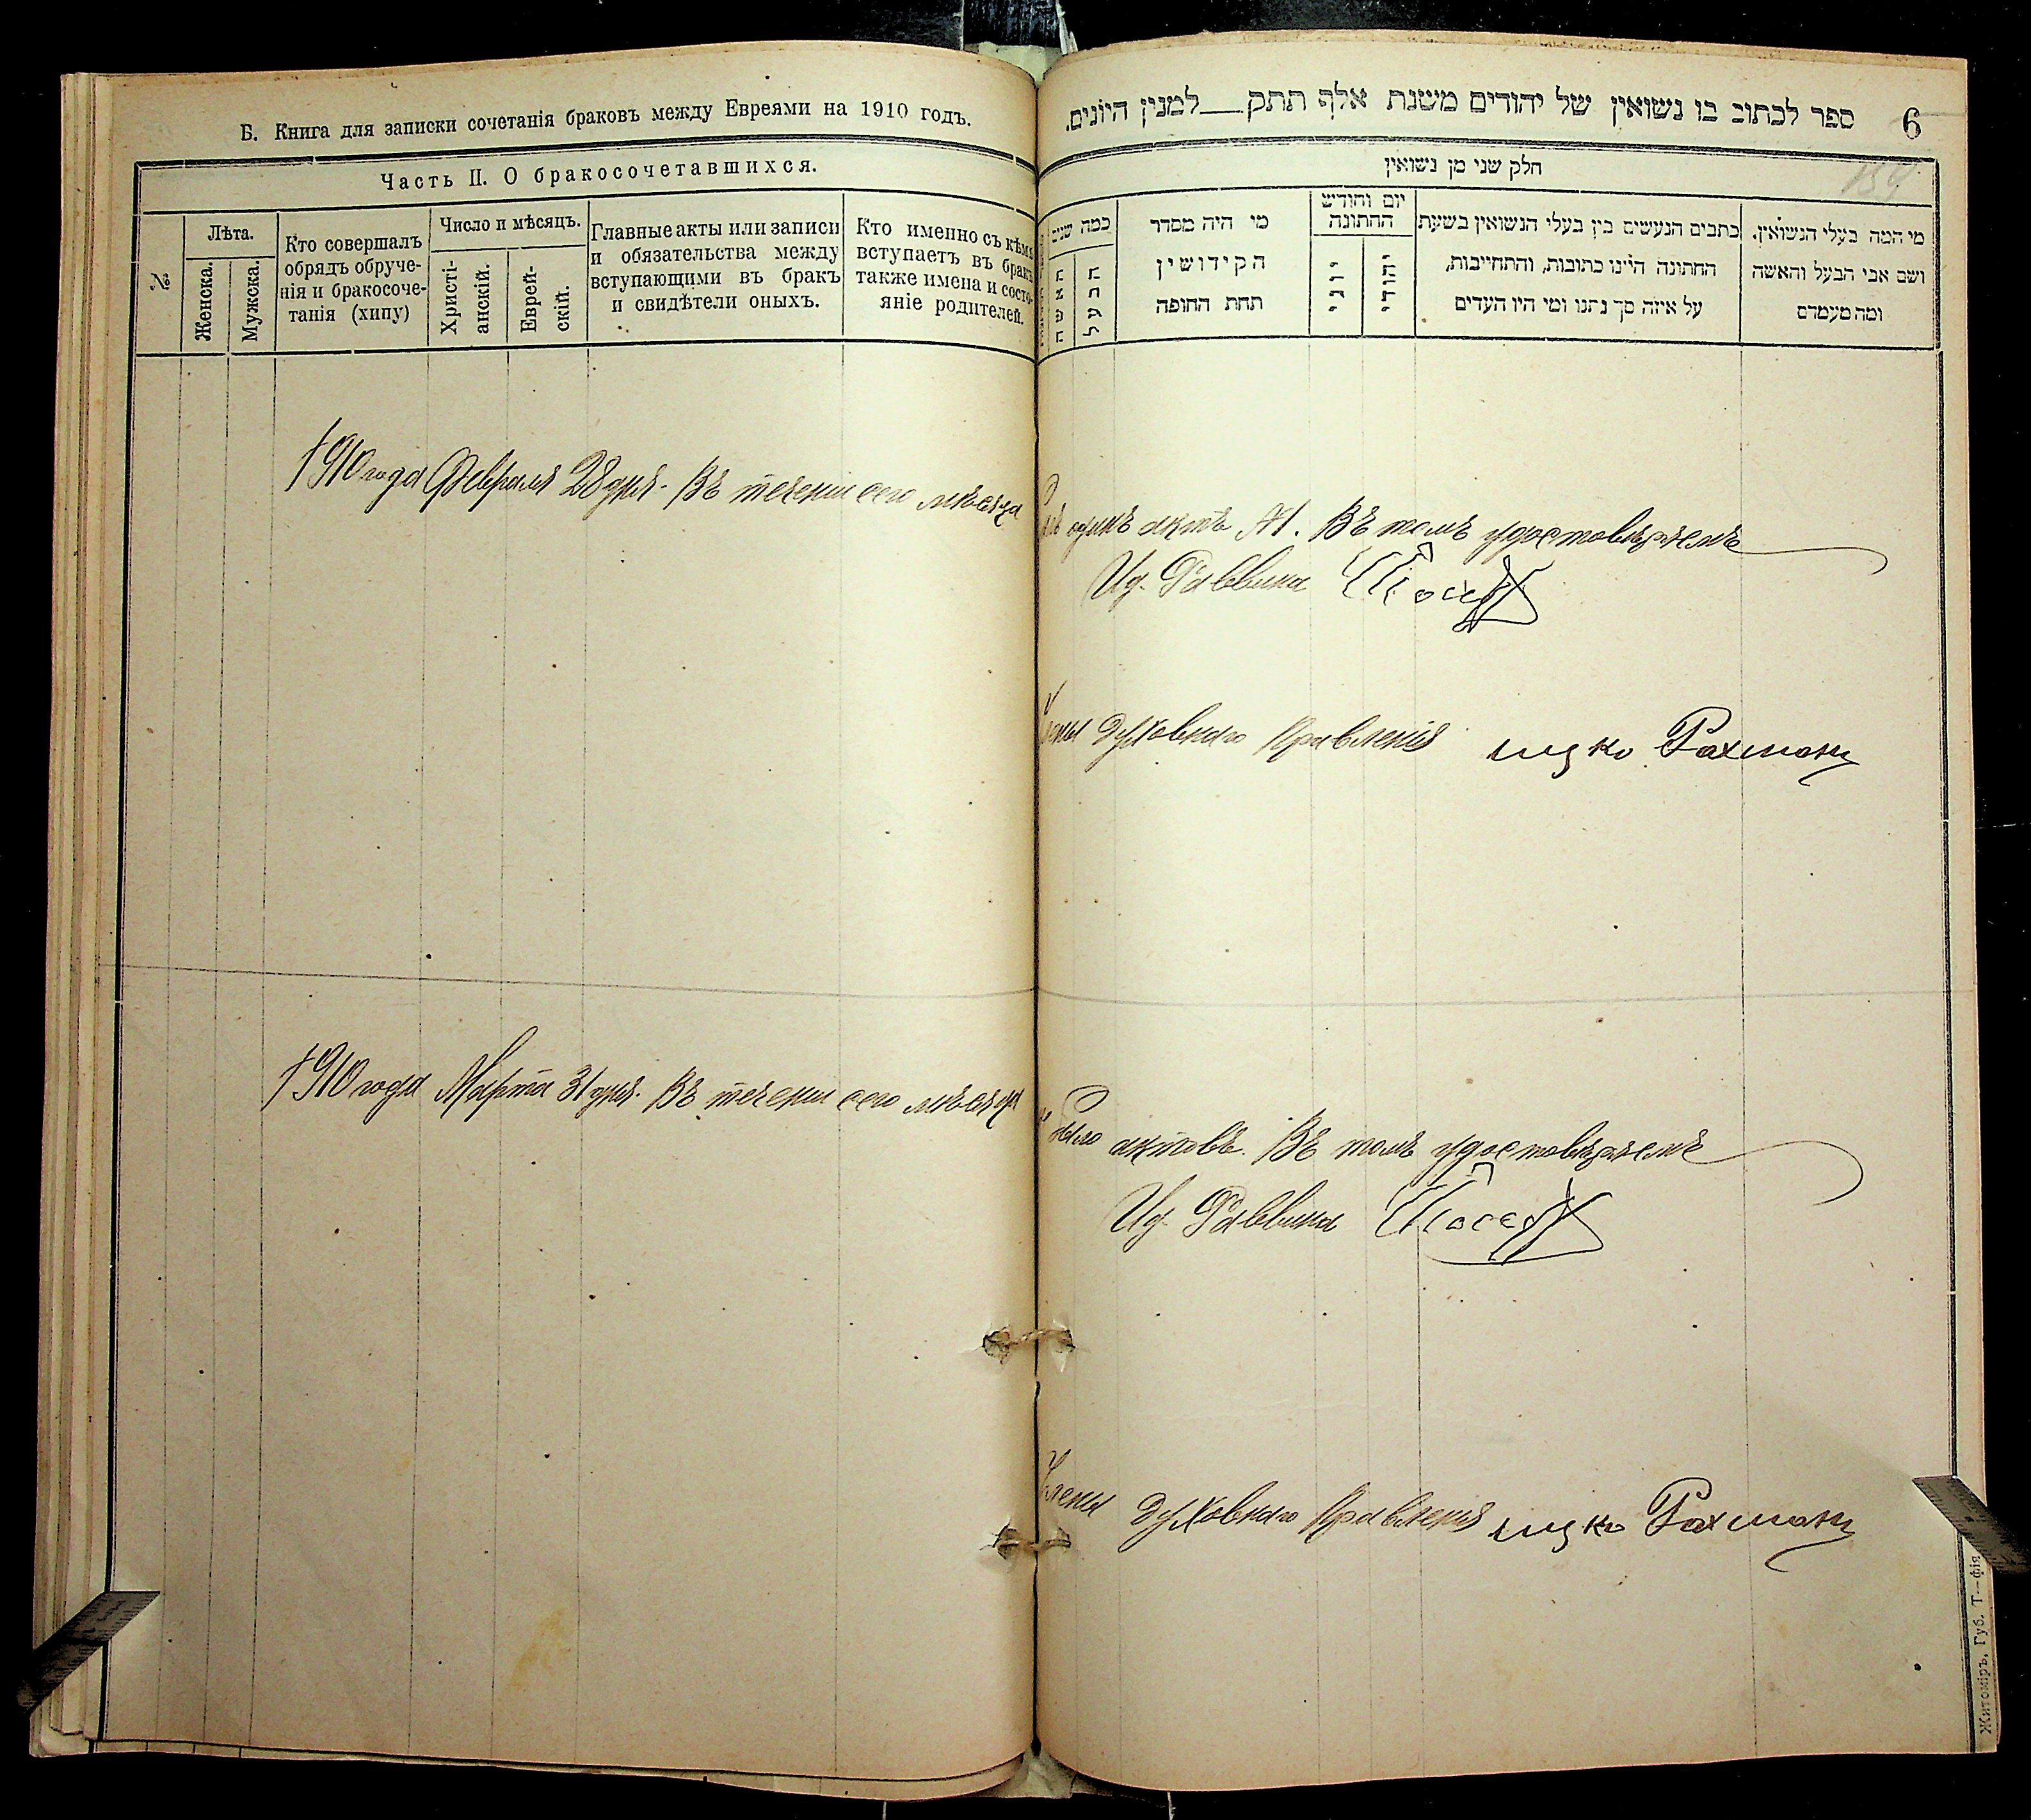 Б. Книга для записки сочетанія браковъ между Евреями на 1910 годъ.
Часть II. О бракосочетавшихся.
№
Лѣта.
Женска.
Мужска.
Кто совершалъ
обрядъ обруче-
нія и бракосоче-
танія (хипу)
Число и мѣсяцъ.
Христі-
анскій.
Еврей-
скій.
Главные акты или записи
и обязательства между
вступающими въ бракъ
и свидѣтели оныхъ.
Кто именно съ кѣмъ
вступаетъ въ бракъ
также имена и состо-
яніе родителей.
1910 года Февраля 28 дня. Въ течени сего мѣсяца
1910 года Марта 31 дня. Въ течени сего мѣсяца
ספר לכתוב בו נשואין של יהודים משנת אלף תתק למנין היונים.
6
159
חלק שני מן נשואין
מי המה בעלי הנשואין.
ושם אבי הבעל והאשה
ומה מעמדם
כתבים הנעשים בין בעלי הנשואין בשעת
החתונה היינו כתובות, והתחייבות,
על איזה סך נתנו ומי היו העדים
יום וחודש
החתונה
יהודי
יוני
מי היה מסדר
הקידושין
תחת החופה
כמה שנים
הבעל
האשה
одинъ актъ №1. Въ томъ удостовѣряемъ
Ид. Раввина
Члены Духовнаго Правленія ицко Рахман
было актовъ. Въ томъ удостовѣряемъ
Ид. Раввина
Члены Духовнаго Правленія ицко Рахман
Житоміръ, Губ. Т—фія